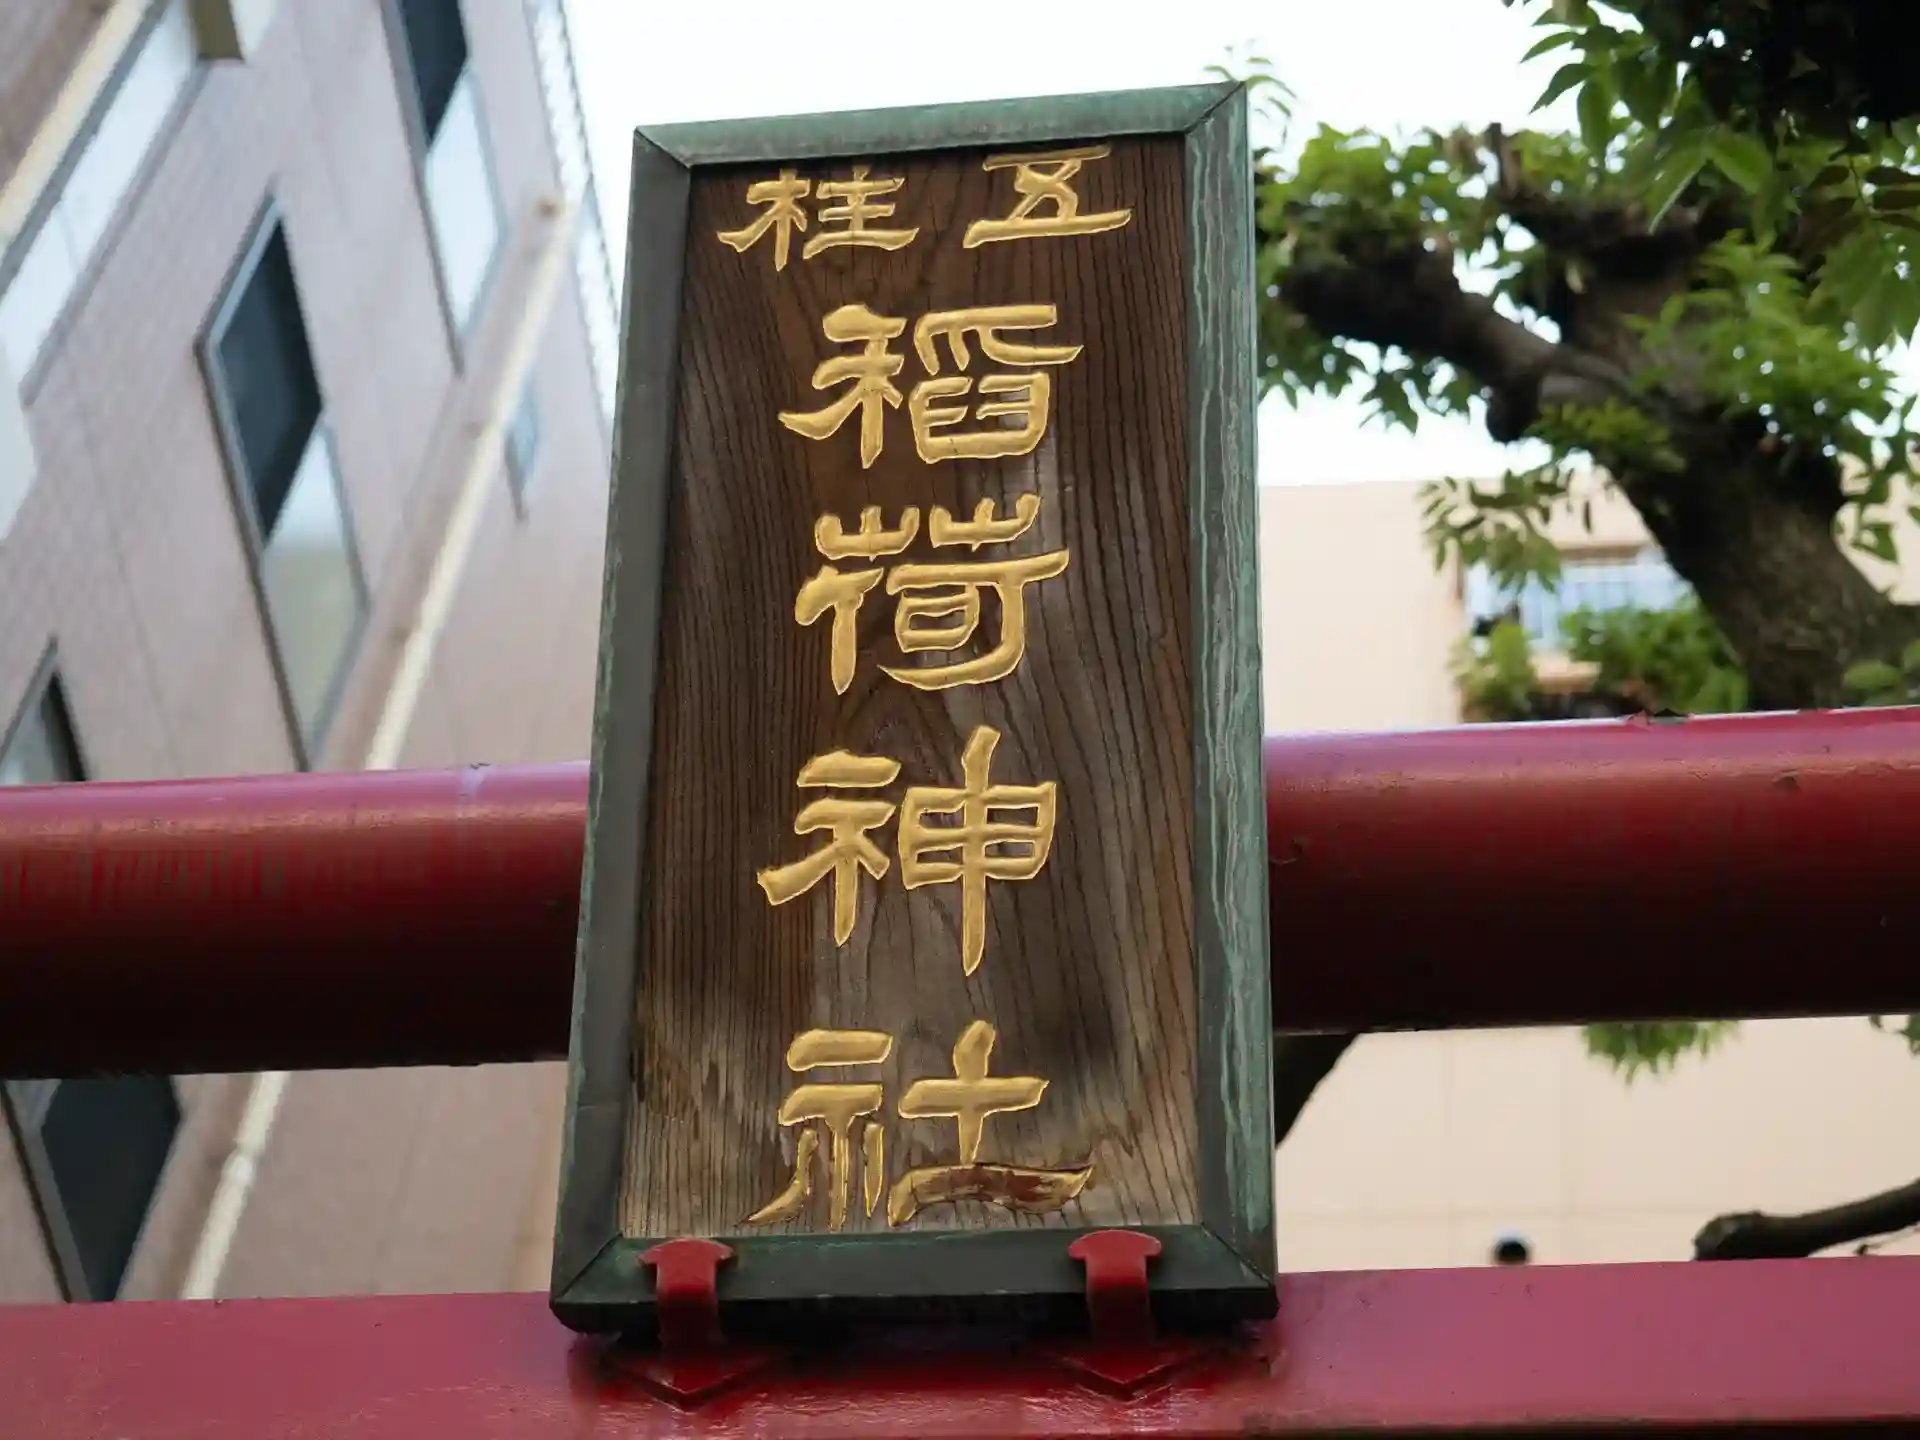 五桂
稲荷神社